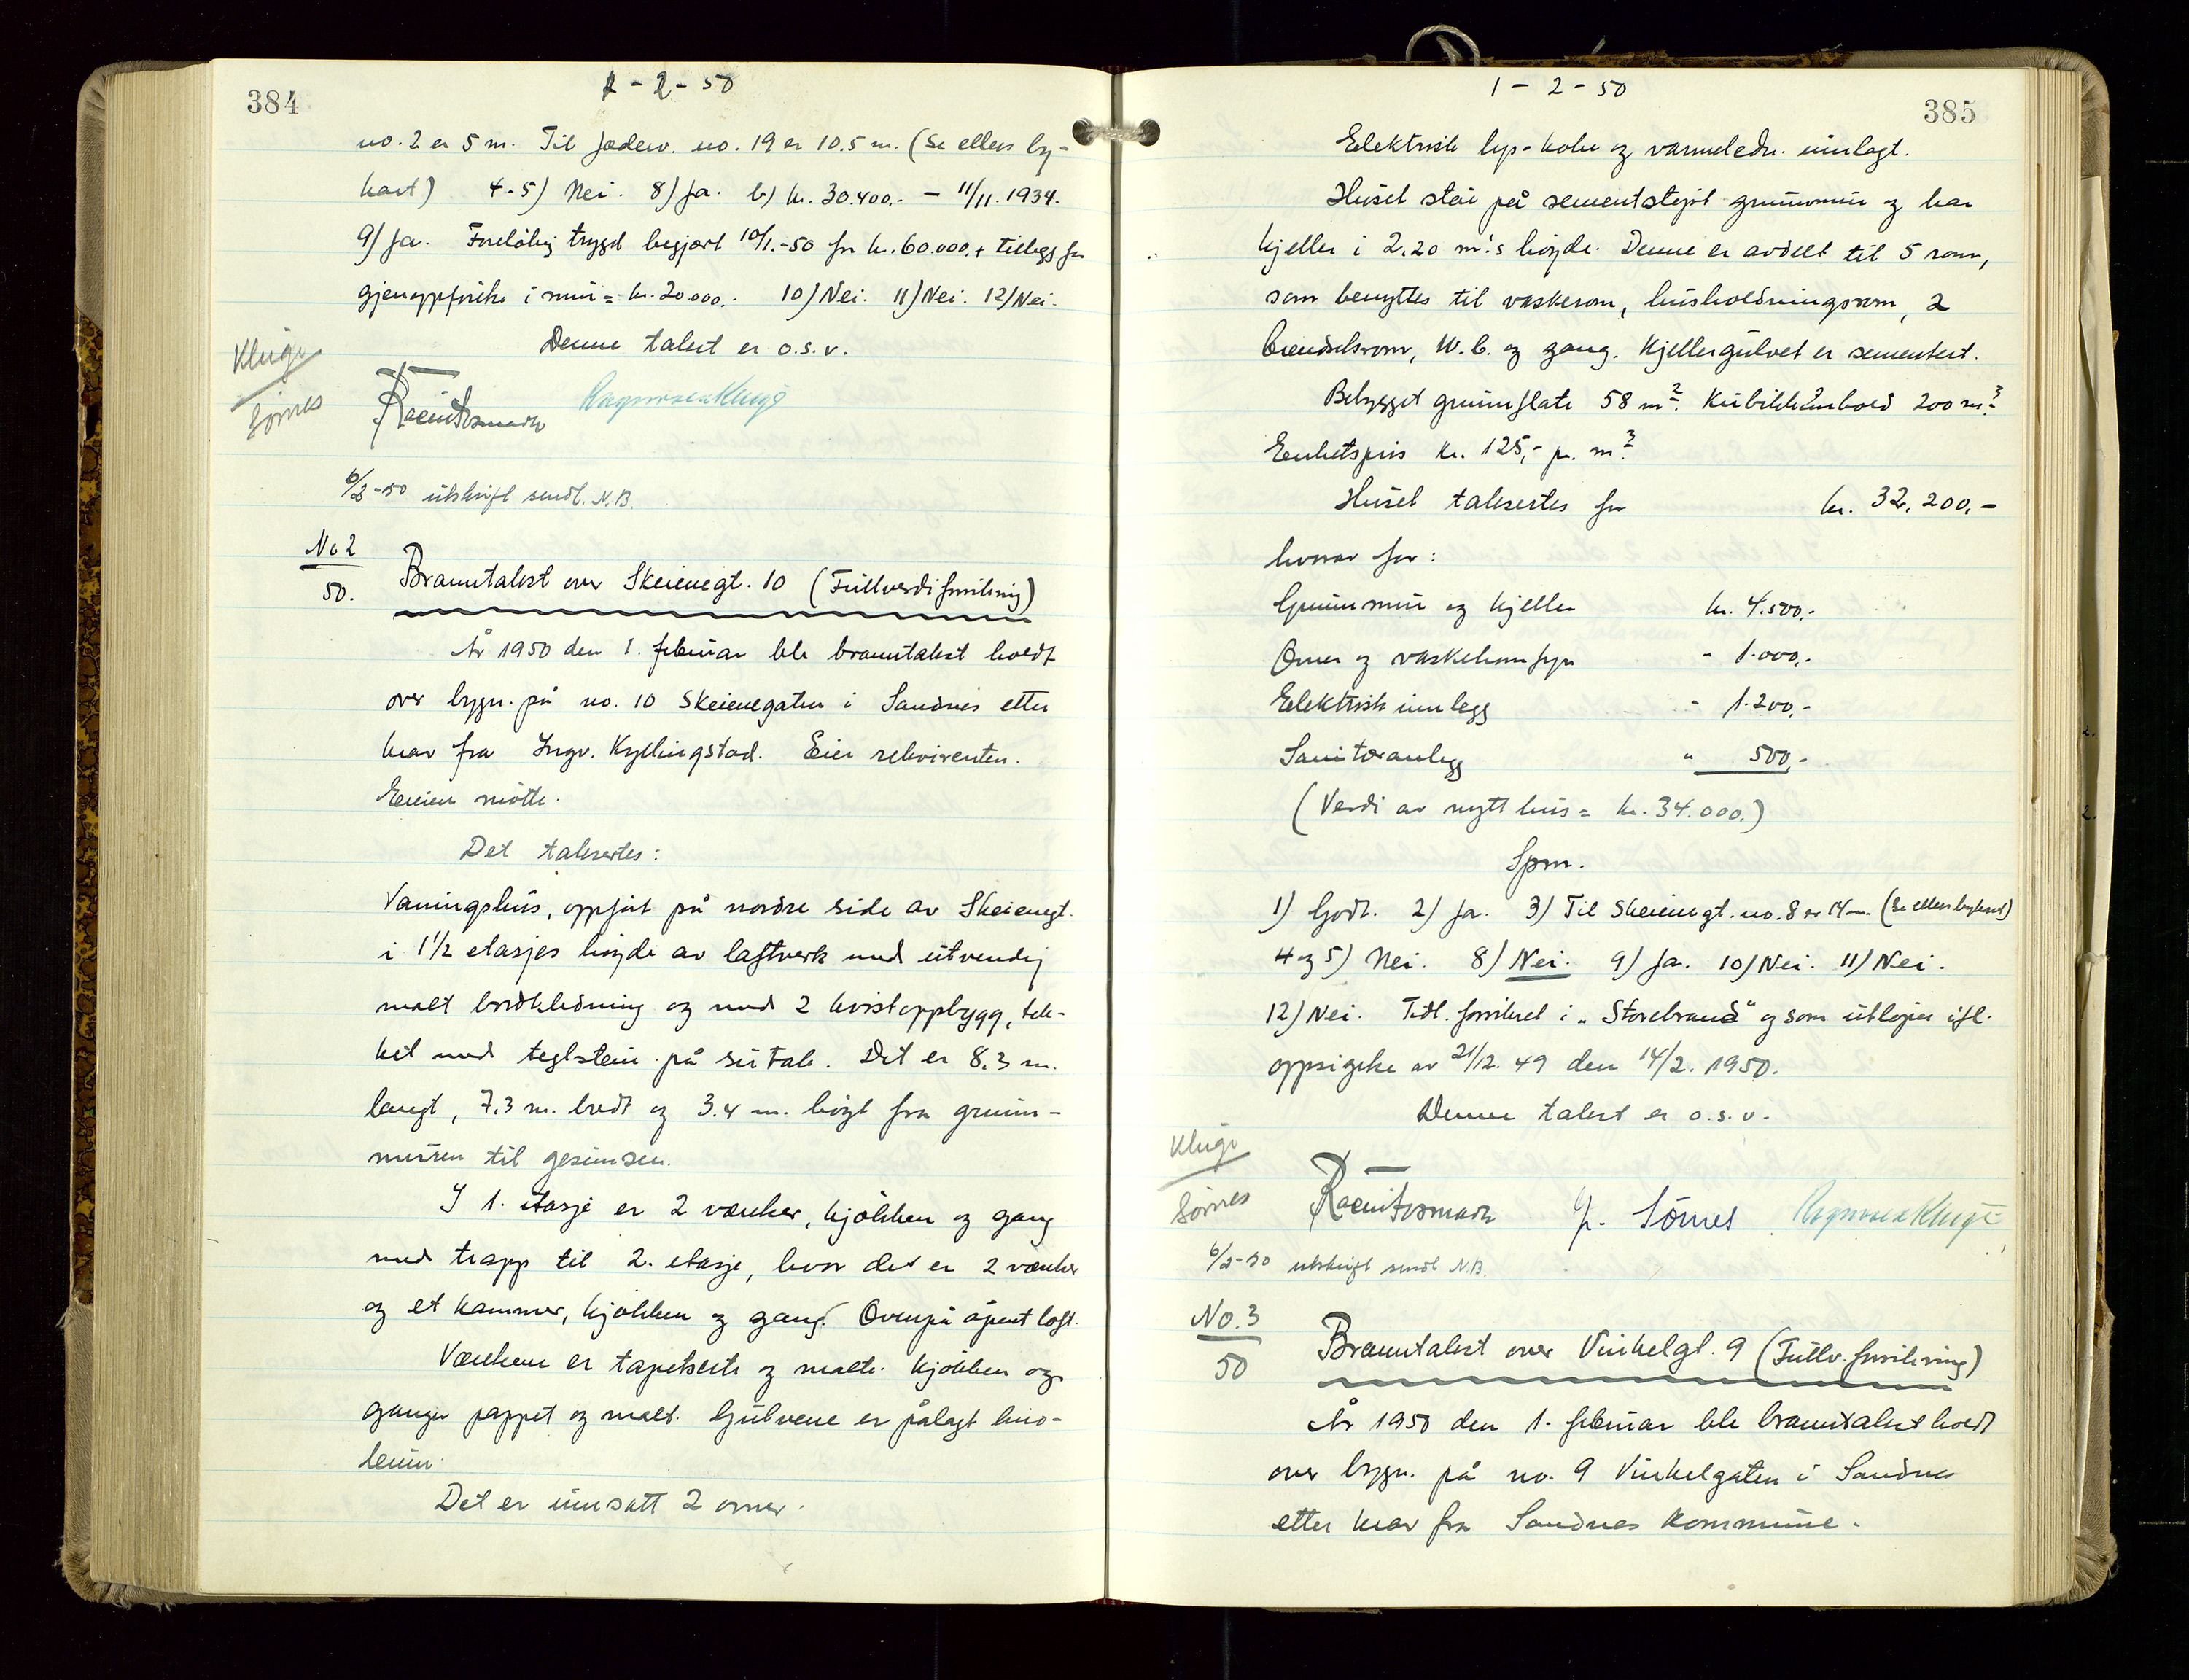 384
1-2-50
no. 2 er 5 m. Til Jædew. no. 19 er 10.5 m. (Se ellers by-
kart) 4-5) Nei. 8) Ja. b) kr. 30.400.- - 11/11. 1934.
9) Ja. Foreløbig trygd begjært 10/1.-50 for kr. 60.000.+ tillegg for
gjenoppførelse i mur = kr. 20.000.- 10) Nei. 11) Nei. 12) Nei.
Denne takst er o.s.v.
Kluge
Sørnes
6/2-50 utskrift sendt. N.B.
No 2
50.
Branntakst over Skeienegt. 10 (Fullverdiforsikring)
År 1950 den 1. februar ble branntakst holdt
over bygn. på no. 10 Skeienegaten i Sandnes etter
krav fra Ingv. Kyllingstad. Eier rekvirenten.
Eieren møtte.
Det takseres:
Vaningshus, oppført på nordre side av Skeienegt.
i 1 1/2 etasjes høyde av laftverk med utvendig
malt bordkledning og med 2 kvistoppbygg, tek-
ket med teglstein på sutak. Det er 8,3 m.
langt, 7,3 m. bredt og 3.4 m. høgt fra grunn-
muren til gesimsen.
I 1. etasje er 2 værelser, kjøkken og gang
med trapp til 2. etasje, hvor det er 2 værelser
og et kammer, kjøkken og gang. Ovenpå åpent loft.
Værelsene er tapetserte og malte. Kjøkken og
ganger pappet og malt. Gulvene er pålagt lino-
leum.
Det er innsatt 2 ovner.
385
1-2-50
Elektrisk lys- koke og varmeledn. innlagt.
Huset står på sementstøpt grunnmur og har
kjeller i 2.20 m's høyde. Denne er avdelt til 5 rom,
som benyttes til vaskerom, husholdningsrom, 2
brendselsrom, W.C. og gang. Kjellergulvet er sementert.
Bebygget grunnflate 58 m². Kubikkinnhold 200 m³.
Enhetspris kr. 125,- pr. m³.
Huset takseres for kr. 32.200.-
hvorav for:
Grunnmur og kjeller kr. 4.500,-
Ovner og vaskekomfyr " 1.000,-
Elektrisk innlegg " 1.200,-
Sanitæranlegg " 500,-
(Verdi av nytt hus = kr. 34.000.)
Spm.
1) Godt. 2) Ja. 3) Til Skeienegt. no. 8 er 14 m. (Se ellers bykart)
4 og 5) Nei. 8) Nei. 9) Ja. 10) Nei. 11) Nei.
12) Nei. Tidl. forsikret i „Storebrand" og som utløper ifl.
oppsigelse av 21/12. 49 den 14/2. 1950.
Denne takst er o.s.v.
Kluge
Sørnes
P. Sørnes
6/2-50 utskrift sendt N.B.
No. 3
50
Branntakst over Vinkelgt. 9 (Fullv. forsikring)
År 1950 den 1. februar ble branntakst holdt
over bygn. på no. 9 Vinkelgaten i Sandnes
etter krav fra Sandnes kommune.